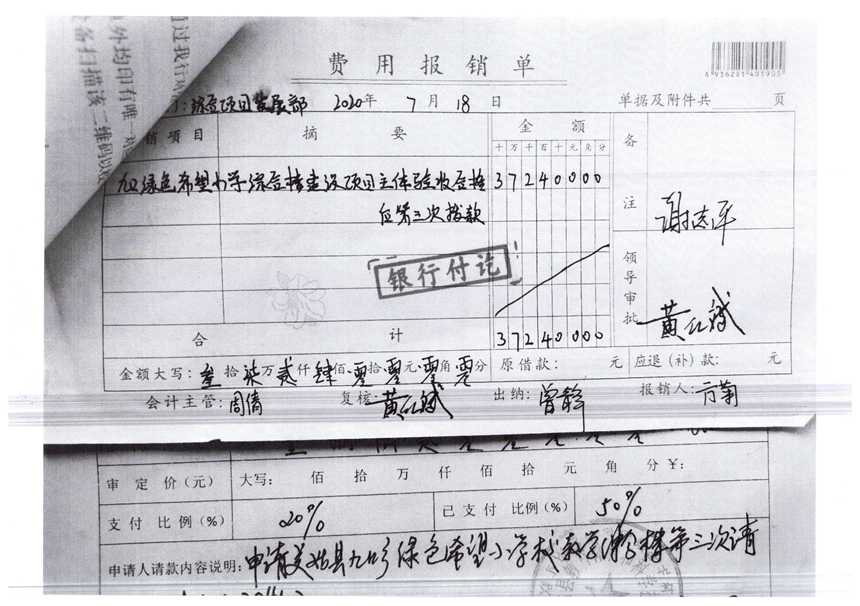 过我行
外均印有唯一
备扫描该二维码以
费用报销单
6936291401903
门:综合项目发展部 2020年 7月 18日 单据及附件共 页
销项目 摘要 金额 备注
十万千百十元角分
九口绿色希望小学综合楼建设项目主体验收合格 37240000
后第三次拨款
谢志平
银行付讫
领导审批 黄红斌
合计 37240000
金额大写: 叁拾柒万贰仟肆佰零拾零元零角零分 原借款: 元 应退(补)款: 元
会计主管:周倩 复核:黄红斌 出纳:曾静 报销人:方菊
审定价(元) 大写: 佰 拾 万 仟 佰 拾 元 角 分 ¥:
支付比例(%) 20% 已支付比例(%) 50%
申请人请款内容说明:申请美姑县九口乡绿色希望小学校教学综合楼第三次请